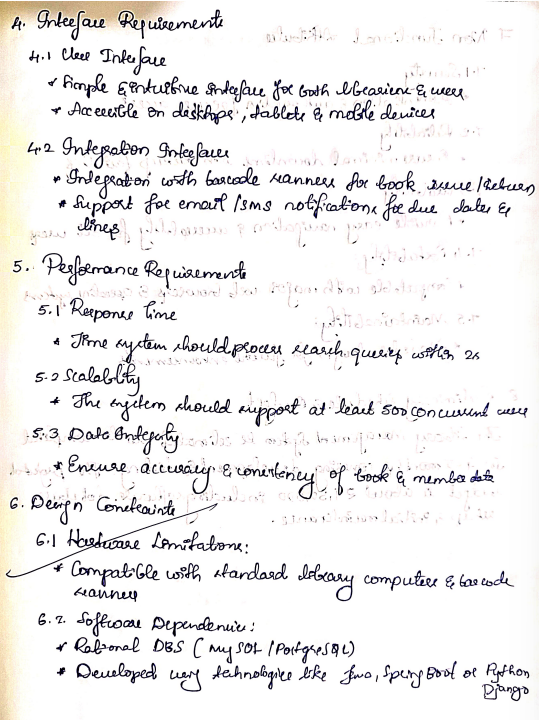 4. Interface Requirements
4.1 User Interface
* Simple & intuitive interface for both librarians & users
* Accessible on desktops, tablets & mobile devices
4.2 Integration Interfaces
* Integration with barcode scanners for book issue/return
* Support for email/SMS notifications for due dates &
fines
5. Performance Requirements
5.1 Response Time
* Time system should process search queries within 2s
5.2 Scalability
* The system should support at least 500 concurrent users
5.3 Data Integrity
* Ensure accuracy & consistency of book & member data
6. Design Constraints
6.1 Hardware Limitations:
* Compatible with standard library computers & barcode
scanners
6.2. Software Dependencies:
* Rational DBS (MySQL/PostgreSQL)
* Developed using technologies like Java, Spring Boot or Python
Django